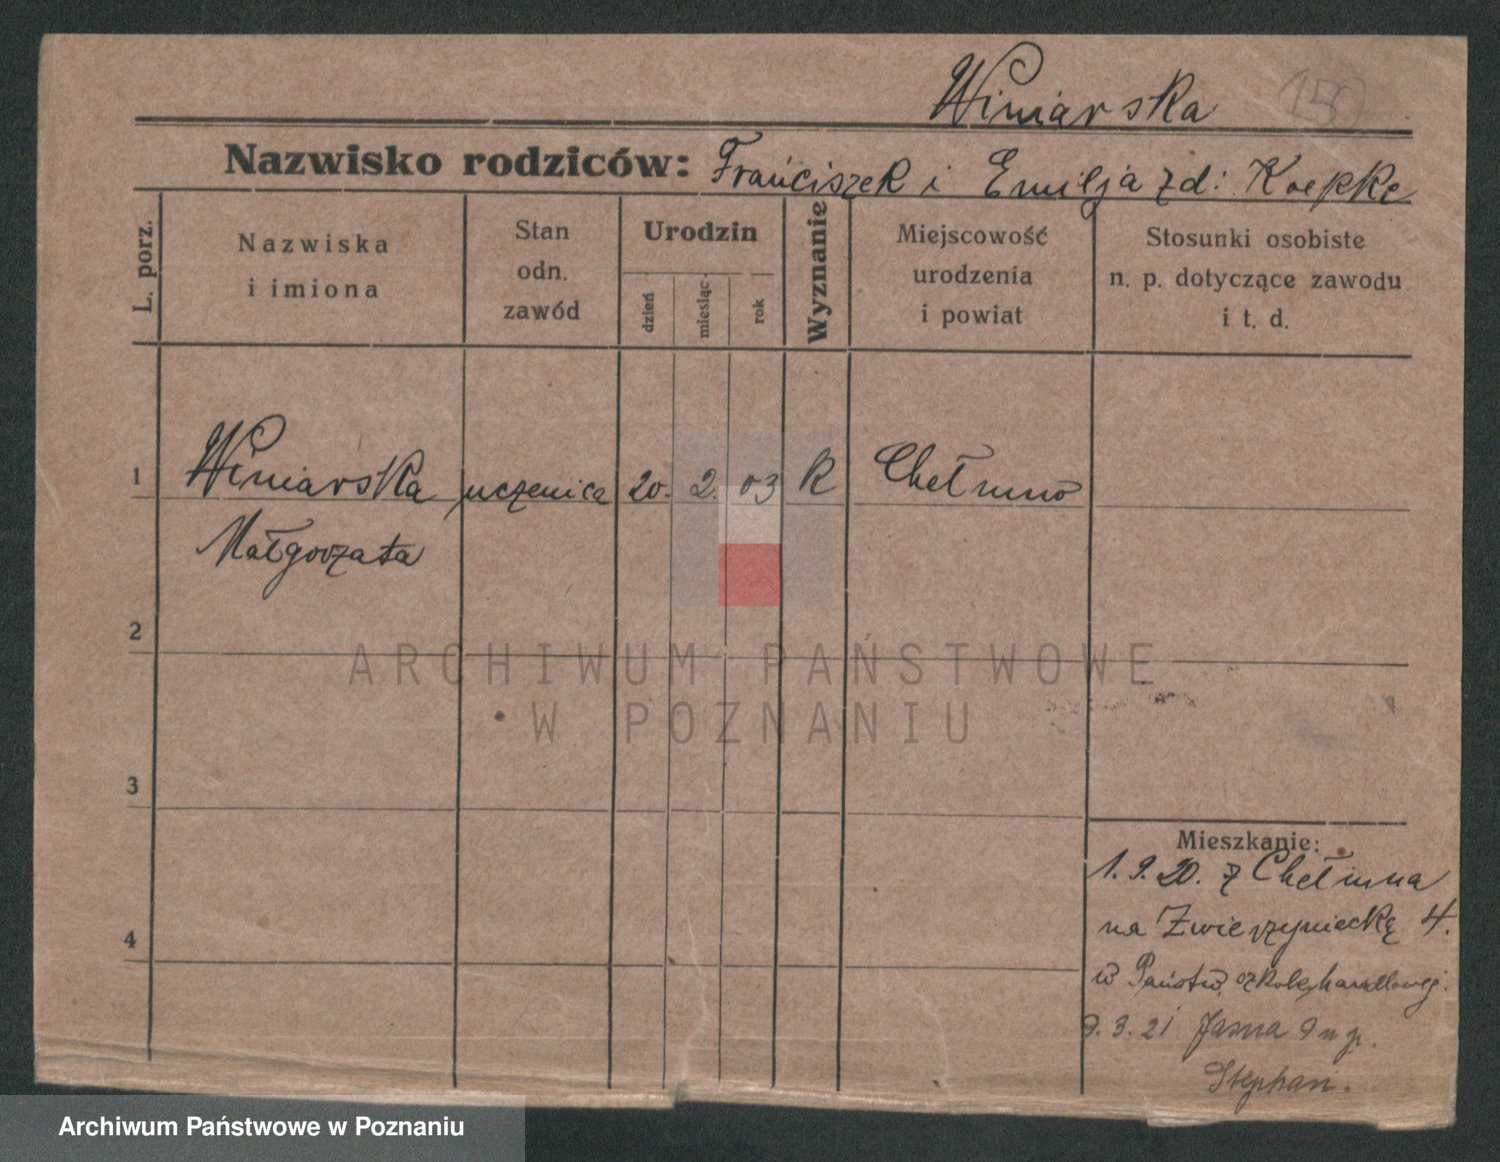 Winiarska
150
Nazwisko rodziców: Franciszek i Emilja zd: Koepke
L. porz.
Nazwiska
i imiona
Stan
odn.
zawód
Urodzin
dzień
miesiąc
rok
Wyznanie
Miejscowość
urodzenia
i powiat
Stosunki osobiste
n. p. dotyczące zawodu
i t. d.
1 Winiarska uczenica 20. 2. 03 R Chełmno
Małgorzata
2
ARCHIWUM PAŃSTWOWE
W POZNANIU
3
Mieszkanie:
1.9.20. z Chełmna
na Zwierzyniecką 4.
w Państw. szkole handlowej.
4
9.3.21 Jasna 9
Stephan.
Archiwum Państwowe w Poznaniu